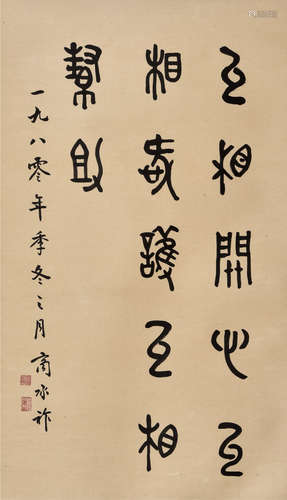 互相關心互
相愛護互相
幫助
一九八零年季冬之月 商承祚